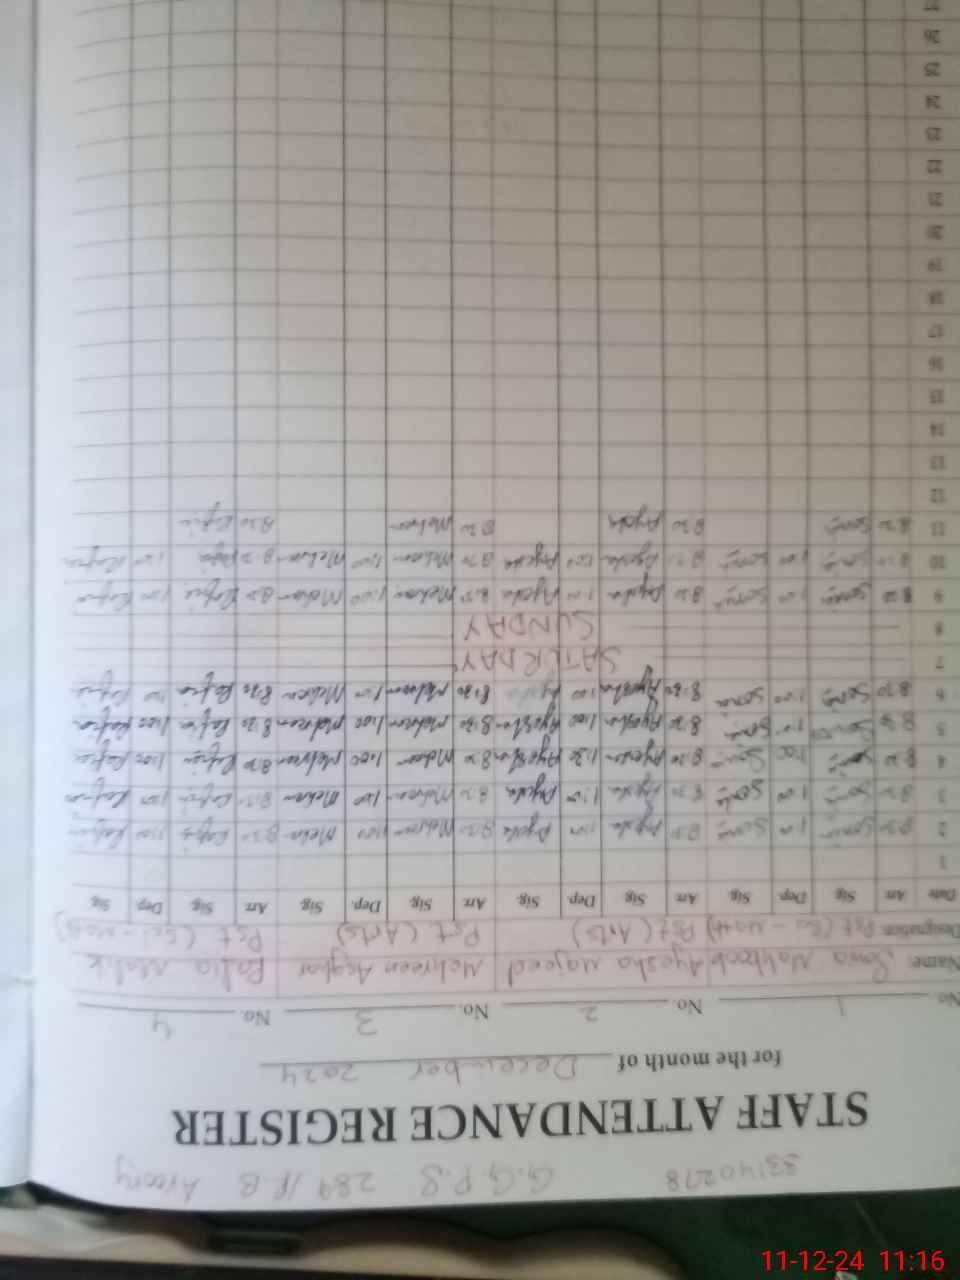 33140278 G.G.P.S 289 /R.B
STAFF ATTENDANCE REGISTER
for the month of December 2024
No. 1 No. 2 No. 3 No 4
Name Sonia Mahboob Ayesha Majeed Mehreen Asghar Rafia Malik
Designation Pst (Sci - Math) Pst (Arts) Pst (Arts) Pst (Sci - Math)
Date Arr Sig. Dep. Sig. Arr. Sig. Dep. Sig. Arr. Sig. Dep. Sig. Arr. Sig. Dep. Sig
1
2 8:30 Sonia 1:00 Sonia 8:30 Ayesha 1:00 Ayesha 8:30 Mehreen 1:00 Mehreen 8:30 Rafia 1:00 Rafia
3 8:30 Sonia 1:00 Sonia 8:30 Ayesha 1:00 Ayesha 8:30 Mehreen 1:00 Mehreen 8:30 Rafia 1:00 Rafia
4 8:30 Sonia 1:00 Sonia 8:30 Ayesha 1:30 Ayesha 8:30 Mehreen 1:00 Mehreen 8:30 Rafia 1:00 Rafia
5 8:30 Sonia 1:00 Sonia 8:30 Ayesha 1:00 Ayesha 8:30 Mehreen 1:00 Mehreen 8:30 Rafia 1:00 Rafia
6 8:30 Sonia 1:00 Sonia 8:30 Ayesha 1:00 Ayesha 8:30 Mehreen 1:00 Mehreen 8:30 Rafia 1:00 Rafia
7 SATERDAY
8 SUNDAY
9 8:30 Sonia 1:00 Sonia 8:30 Ayesha 1:00 Ayesha 8:30 Mehreen 1:00 Mehreen 8:30 Rafia 1:00 Rafia
10 8:30 Sonia 1:00 Sonia 8:30 Ayesha 1:00 Ayesha 8:30 Mehreen 1:00 Mehreen 8:30 Rafia 1:00 Rafia
11 8:30 Sonia 8:30 Ayesha 8:30 Mehreen 8:30 Rafia
12
13
14
15
16
17
18
19
20
21
22
23
24
25
26
27
11-12-24 11:16